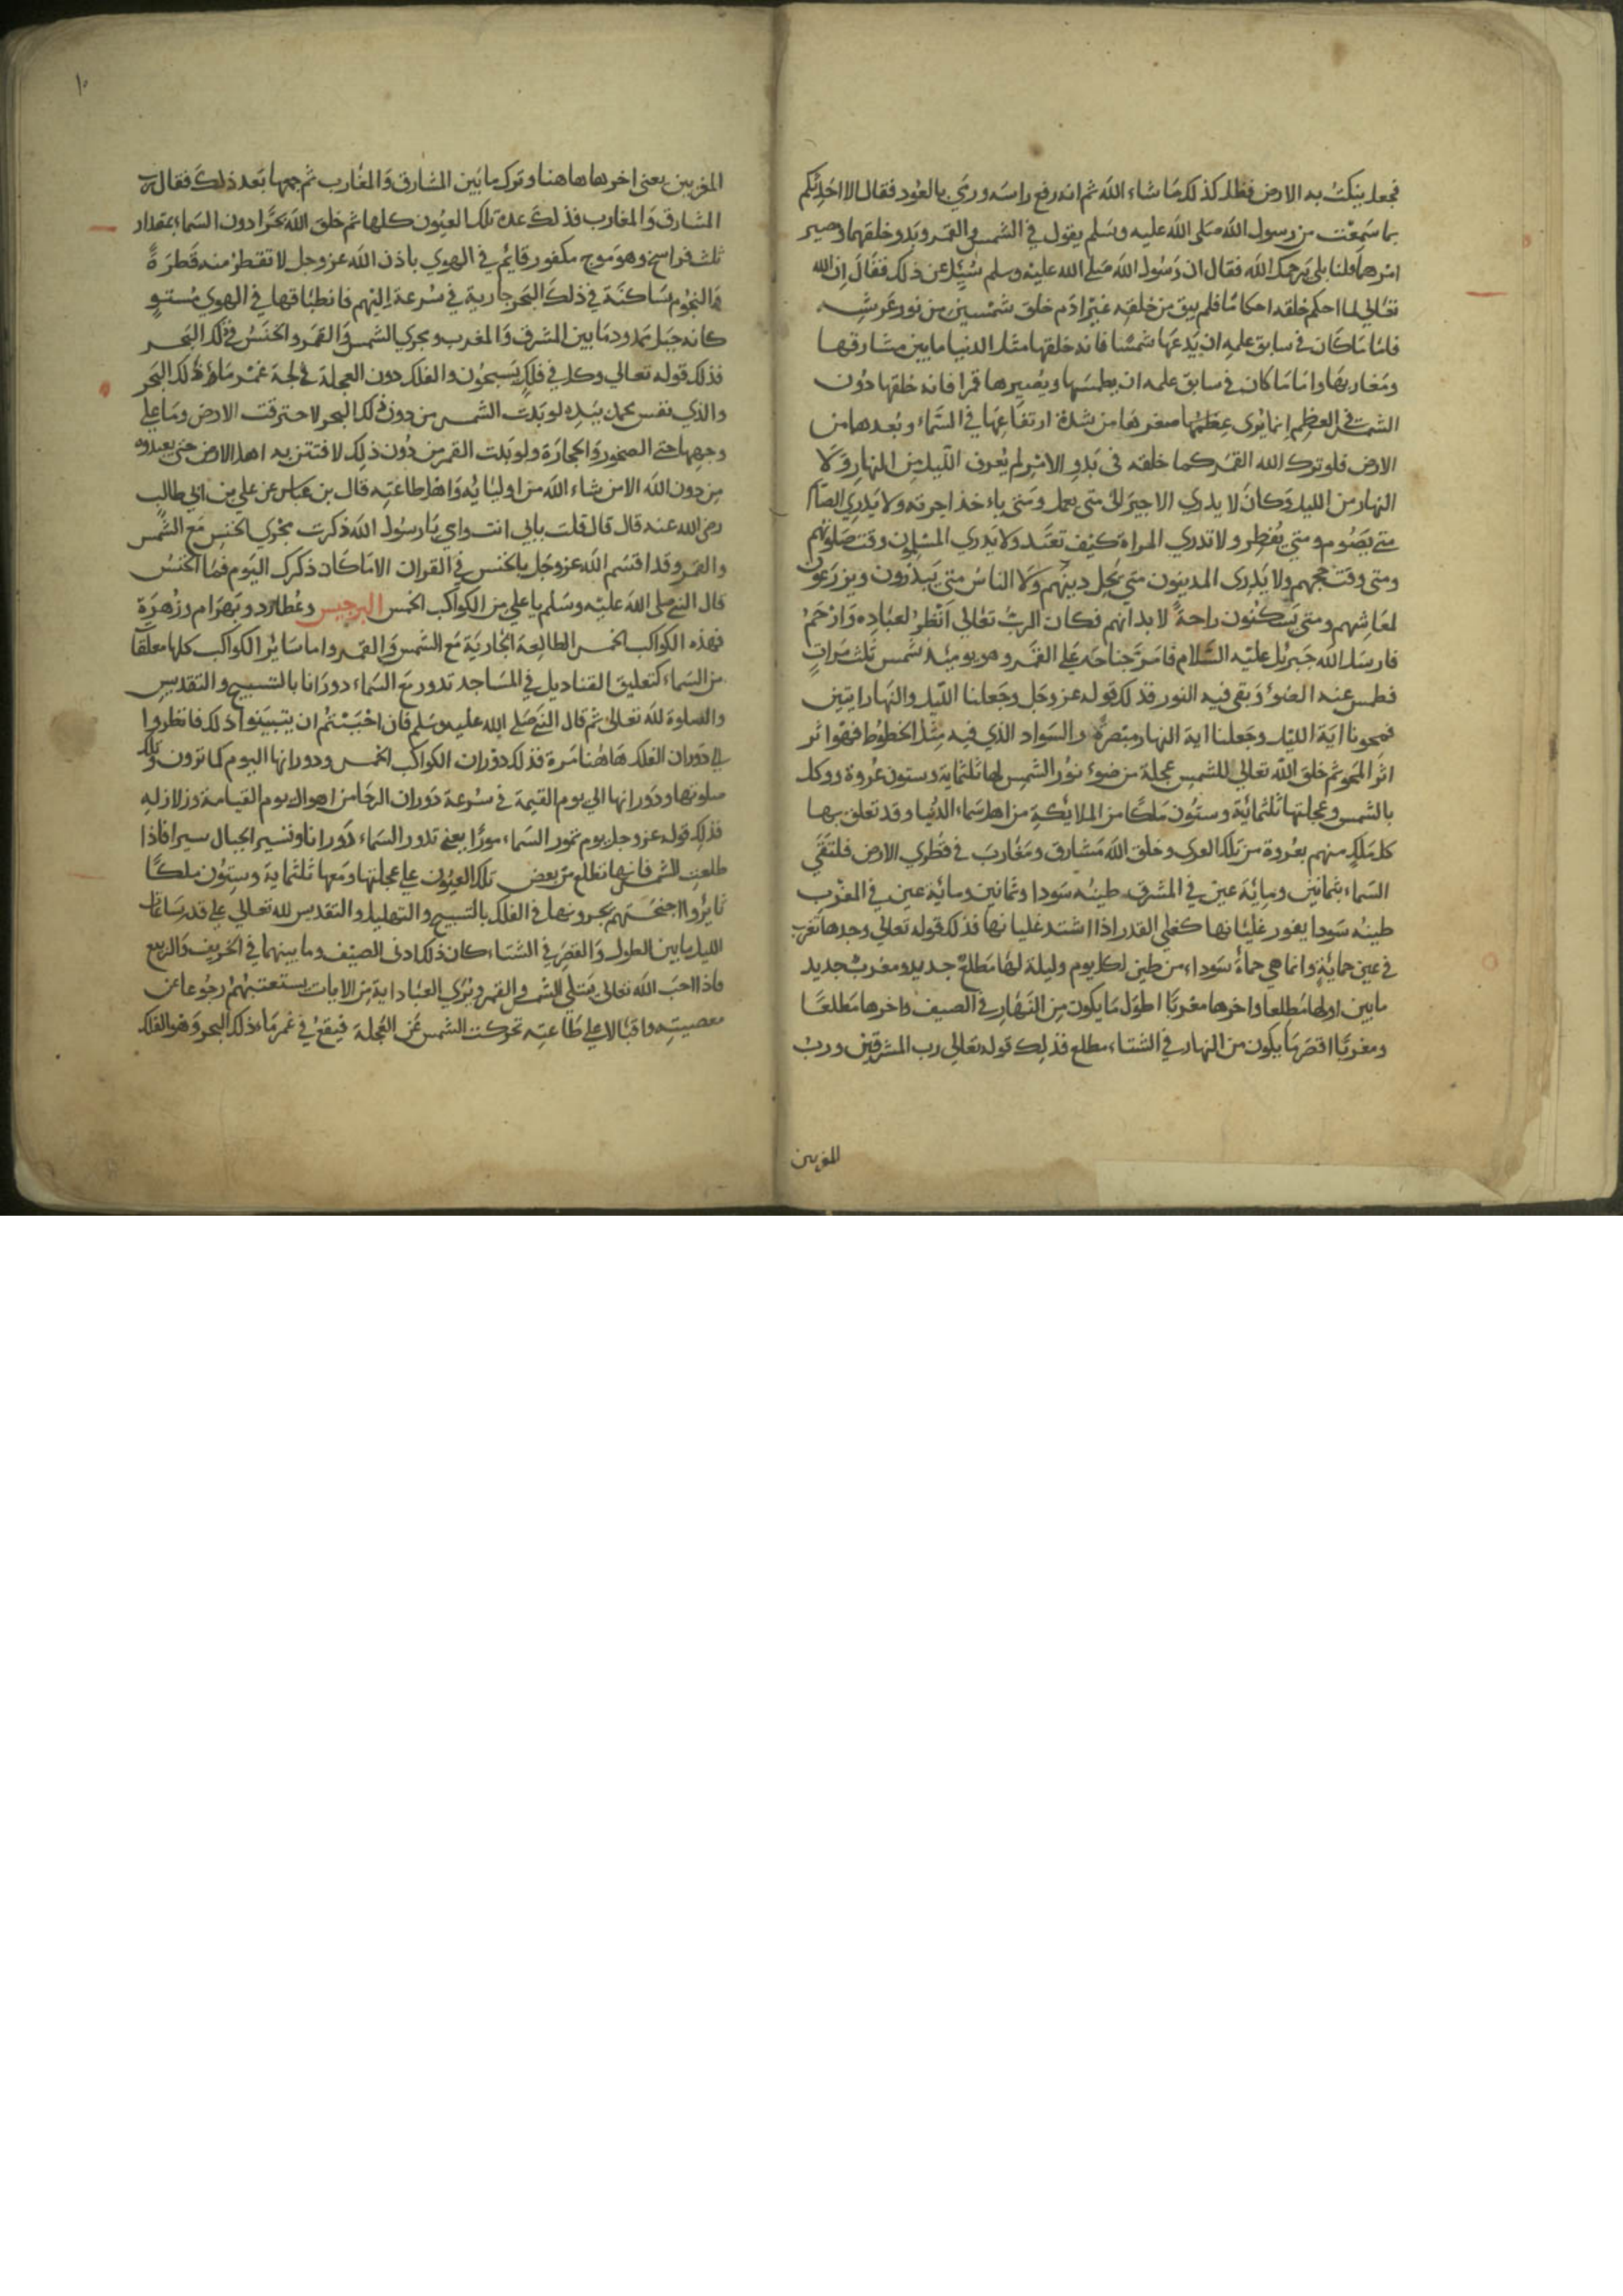 فجعل ينكت به الارض فظل كذلك ما شاء الله ثم انه رفع راسه ورمي بالعود فقال الا احدثكم
بما سمعت من رسول الله صلى الله عليه وسلم يقول في الشمس والقمر وبدو خلقهما ومصير
امرهما قلنا بلى يرحمك الله فقال ان رسول الله صلى الله عليه وسلم سُئِل عن ذلك فقال ان الله
تعالى لما احكم خلقه احكاما فلم يبق من خلقه غير ادم خلق شمسين من نور عرشه
فاما ما كان في سابق علمه ان يدعها شمسا فانه خلقها مثل الدنيا ما بين مشارقها
ومغاربها واما ما كان في سابق علمه ان يطمسها ويصيرها قمرا فانه خلقها دون
الشمس في العظم انما يرى عظمها صغرها من شدة ارتفاعها في السماء وبعدها من
الارض فلو ترك الله القمر كما خلقه في بدو الامر لم يُعرف الليل من النهار ولا
النهار من الليل وكان لا يدري الاجير الى متى يعمل ومتى ياءخذ اجرته ولا يدري الصائم
متى يصوم ومتى يفطر ولا تدري المراة كيف تعتد ولا يدري المسلمون وقت صلوتهم
ومتى وقت حجهم ولا يدرى المدينون متى يحل دينهم ولا الناس متى يبذرون ويزرعون
لمعاشهم ومتى يسكنون راحة لابدانهم فكان الرب تعالى انظر لعباده وارحم
فارسل الله جبريل عليه السلام فامر جناحه على القمر وهو يومئذ شمس ثلث مرات
فطمس عنه الضوء وبقى فيه النور فذلك قوله عز وجل وجعلنا الليل والنهار ايتين
فمحونا اية الليل وجعلنا اية النهار مبصرة والسواد الذي فيه مثل الخطوط فهو اثر
اثر المحو ثم خلق الله تعالى للشمس عجلة من ضوء نور الشمس لها ثلثماية وستون عروة ووكل
بالشمس وعجلتها ثلثمائة وستون ملكا من الملايكة من اهل سماء الدنيا وقد تعلق بها
كل ملك منهم بعروة من تلك العرى وخلق الله مشارق ومغارب في قطري الارض
السماء ثمانين ومائة عين في المشرق طينه سودا وثمانين ومائة عين في المغرب
طينه سودا يفور غليانها كغلي القدر اذا اشتد غليانها فذلك قوله تعالى وجدها تغرب
في عين حمائة وانما هي حماة سوداء من طين لكل يوم وليلة لها مطلع جديد ومغرب جديد
ما بين اولها مطلعا واخرها مغربا اطول ما يكون من النهار في الصيف واخرها مطلعا
ومغربا اقصر ما يكون من النهار في الشتاء مطلع فذلك قوله تعالى رب المشرقين ورب
المغربين
١٠
المغربين يعنى اخرها هاهنا وترك ما بين المشارق والمغارب ثم جمعها بعد ذلك فقال رب
المشارق والمغارب فذلك عدة تلك العيون كلها ثم خلق الله بحرا دون السماء بمقدار
ثلث فراسخ وهو موج مكفور قايم في الهوي باذن الله عز وجل لا تقطر منه قطرة
والنجوم ساكنة في ذلك البحر جارية في سرعة السهم فانطباقها في الهوي مستو
كانه جبل ممدود ما بين المشرق والمغرب ويجري الشمس والقمر والخنس في ذلك البحر
فذلك قوله تعالى وكل في فلك يسبحون والفلك دون العجلة في لجة غمر ماء ذلك البحر
والذي نفس محمد بيده لو بدت الشمس من دون ذلك البحر لاحترقت الارض وما على
وجهها حتى الصخور والحجارة ولو بدت القمر من دون ذلك لافتتن به اهل الارض حتى يعبدوه
من دون الله الا من شاء الله من اوليايه واهل طاعته قال بن عباس عن علي بن ابي طالب
رضى الله عنه قال قال قلت بابي انت وامي يا رسول الله ذكرت مجري الخنس مع الشمس
والقمر وقد اقسم الله عز وجل بالخنس في القران الا ما كان ذكرك اليوم فما الخنس
قال النبي صلى الله عليه وسلم يا علي من الكواكب الخمس البرجيس وعطارد وبهرام وزهرة
فهذه الكواكب الخمس الطالعة الجارية مع الشمس والقمر واما سائر الكواكب كلها معلقات
من السماء كتعليق القناديل في المساجد تدور مع السماء دورانا بالتسبيح والتقديس
والصلوة لله تعالى ثم قال النبي صلى الله عليه وسلم فان احببتم ان يتبينوا ذلك فانظروا
الي دوران الفلك هاهنا مرة فذلك دوران الكواكب الخمس ودورانها اليوم كما ترون وتلك
صلوتها ودورانها الي يوم القيمة في سرعة دوران الرحا من اهوال يوم القيامة وزلازله
فذلك قوله عز وجل يوم تمور السماء مورا يعنى تدور السماء دورانا وتسير الجبال سيرا فاذا
طلعت الشمس فانها تطلع من بعض تلك العيون على عجلتها ومعها ثلثماية وستون ملكا
ناشروا اجنحتهم يجرونها في الفلك بالتسبيح والتهليل والتقديس لله تعالى على قدر ساعات
الليل ما بين الطول والقصر في الشتاء كان ذلك او في الصيف وما بينهما في الخريف والربيع
فاذا احب الله تعالى يبتلي الشمس والقمر ويُري العباد اية من الايات يستعتبهم رجوعا عن
معصيته واقبالا على طاعته تحركت الشمس عن العجلة فيقع في غمر ماء ذلك البحر وهو الفلك